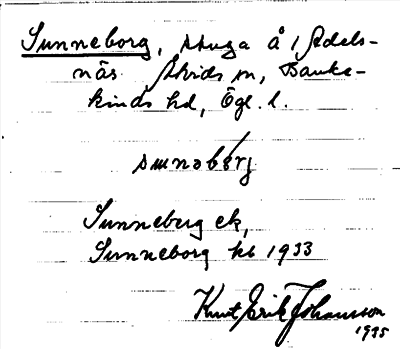 Sunneborg, stuga å 1 Adels-
näs Åtvids sn, Banke-
kinds hd, Ögl. l.
sunəbärg
Sunneberg ek,
Sunneborg kb 1933
Knut Erik Johansson
1935